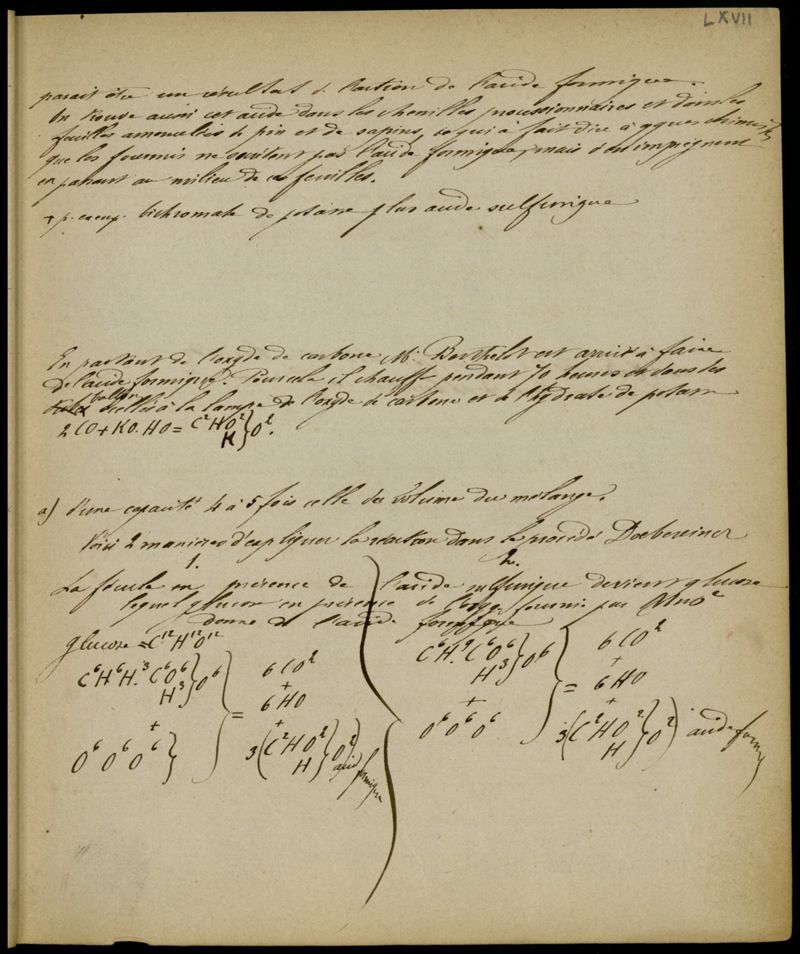 LXVII
parait être un résultat de l'action de l'acide formique.
On trouve aussi cet acide dans les chenilles processionnaires et dans les
feuilles amoncelées de pin et de sapins, ce qui a fait dire à qques chimistes
que les fourmis ne secrètent pas l'acide formique, mais s'en impregnent
en passant au milieu de ces feuilles.
+ p. exemp. bichromate de potasse plus acide sulfurique
En partant de l'oxyde de carbone, Mr Berthelot est arrivé à faire
de l'acide formique. Pour cela il chauffe pendant 70 heures dans les
ballon scellés à la lampe de l'oxyde de carbone et de l'hydrate de potasse
2CO + KO.HO = C²HO² K } O².
a) d'une capacité 4 à 5 fois celle du volume du mélange.
Voici 2 manières d'expliquer la réaction dans le procédé Doebereiner
1. 2.
La fécule en présence de l'acide sulfurique devient glucose
lequel glucose en présence de l'oxyg. fournie par MnO²
donne de l'acide formique
glucose = C¹²H¹²O¹²
C⁶H⁶H.³C⁶O⁶ H³ } O⁶ + O⁶O⁶O⁶ } = 6CO² + 6HO + 3(C²HO² H } O²) acide formique
C⁶H.⁹C⁶O⁶ H³ } O⁶ + O⁶O⁶O⁶ } = 6CO² + 6HO + 3(C²HO² H } O²) acide form